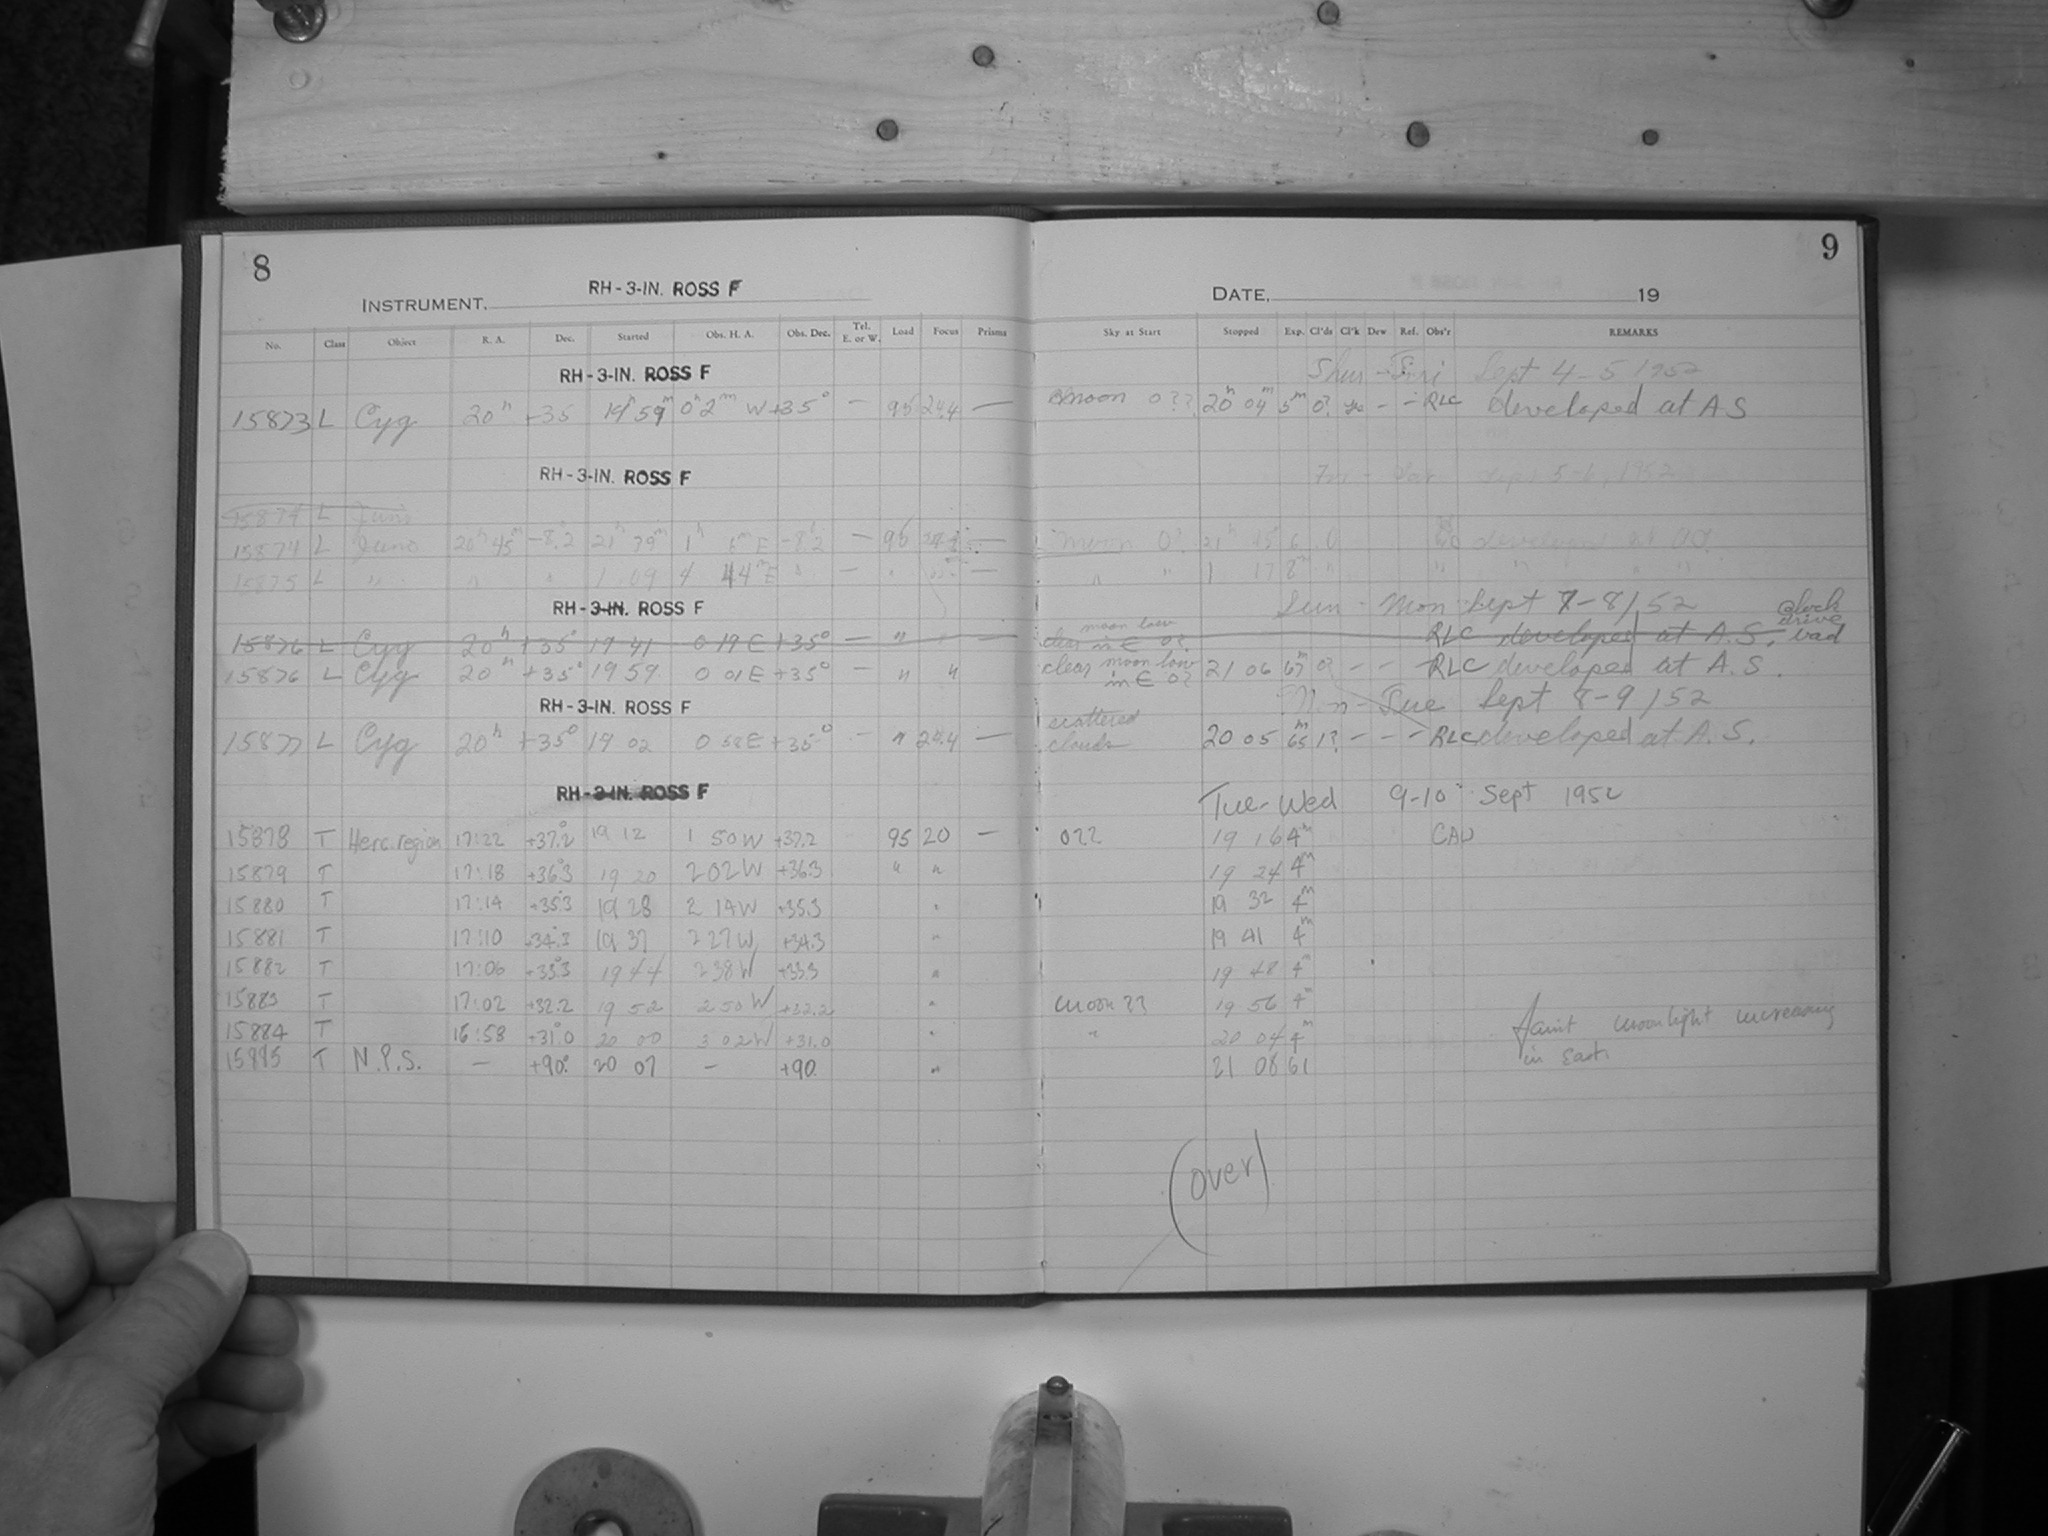 8
9
INSTRUMENT, RH-3-IN. ROSS F
DATE, 19
No. Class Object R. A. Dec. Started Obs. H. A. Obs. Dec. Tel. E. or W. Load Focus Prisms Sky at Start Stopped Exp. Cl'ds Cl'k Dew Ref. Obs'r REMARKS
RH-3-IN. ROSS F Sept 4-5 1952
15873 L Cyg 20h +35 19h 59m 0h 2m W +35° — 95 24.4 — moon 0?? 20h 04m 5m 0? - - RLC developed at AS
RH-3-IN. ROSS F Sept 5-6, 1952
15874 L Juno
15874 L Juno 20h 45m -8.2 21h 39m 1h 6m E -8.2 — 95 — moon 0? 21h 45 6 0 developed at
15875 L " " " 1 09 4 44m E " — " — " " 1 17 8m " " " " "
RH-3-IN. ROSS F Sun - Mon Sept 7-8/52
15876 L Cyg 20h +35° 19 41 0 19 E +35° — " — clear moon low in E 0? RLC developed at A.S. clock drive bad
15876 L Cyg 20h +35° 19 59 0 01 E +35° — " " clear moon low in E 0? 21 06 67m 0? - - - RLC developed at A.S.
RH-3-IN. ROSS F Mon-Tue Sept 8-9/52
15877 L Cyg 20h +35° 19 02 0 58 E +35° — " 24.4 — scattered clouds 20 05 63m 1? - - - RLC developed at A.S.
RH-3-IN. ROSS F Tue-Wed 9-10 Sept 1952
15878 T Herc. region 17:22 +37.2 19 12 1 50 W +37.2 95 20 — 0?? 19 16 4m CAU
15879 T 17:18 +36.3 19 20 2 02 W +36.3 " " 19 24 4m
15880 T 17:14 +35.3 19 28 2 14 W +35.3 " 19 32 4m
15881 T 17:10 +34.3 19 37 2 27 W +34.3 " 19 41 4m
15882 T 17:06 +33.3 19 44 2 38 W +33.3 " 19 48 4m
15883 T 17:02 +32.2 19 52 2 50 W +32.2 " moon ?? 19 56 4m
15884 T 16:58 +31.0 20 00 3 02 W +31.0 " " 20 04 4m faint moonlight increasing
15885 T N.P.S. — +90° 20 07 — +90 " 21 08 61 in East
(over)